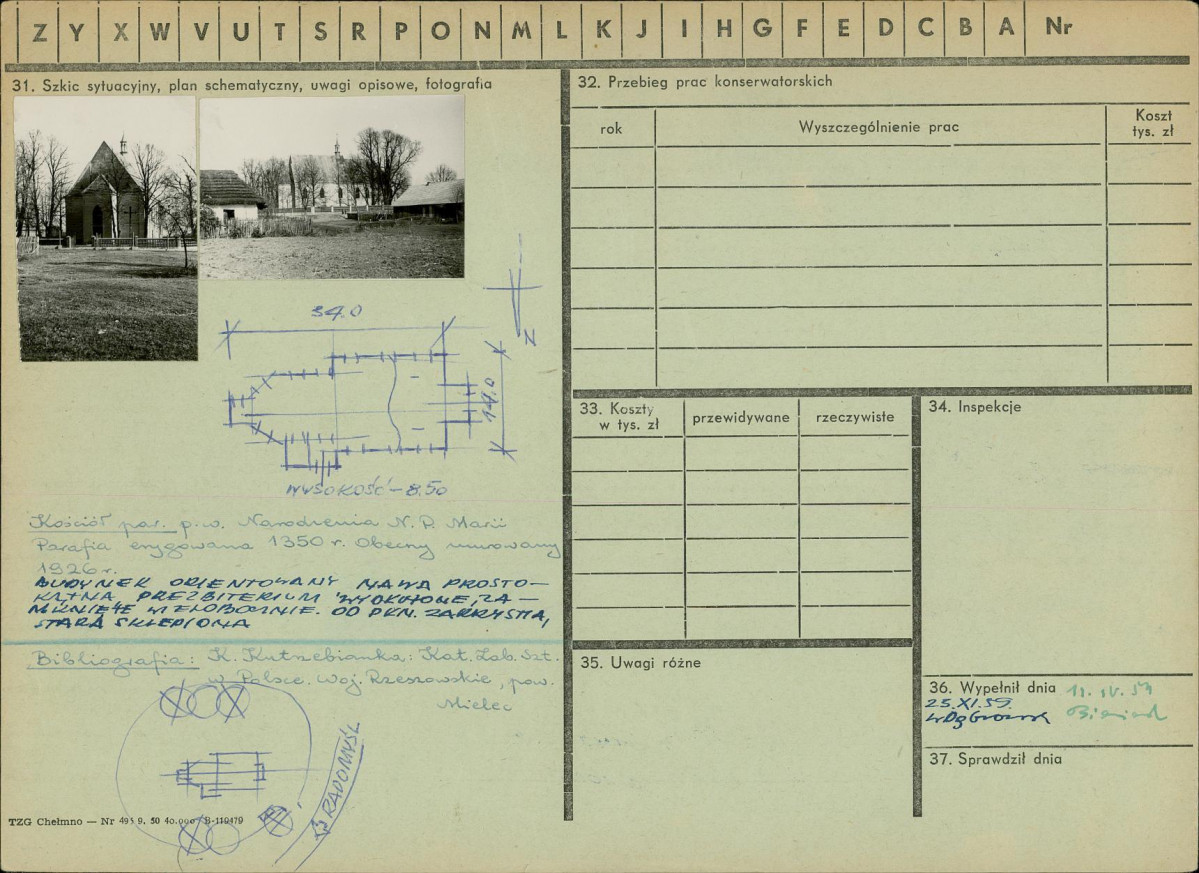 Z Y X W V U T S R P O N M L K J I H G F E D C B A Nr
31. Szkic sytuacyjny, plan schematyczny, uwagi opisowe, fotografia
34.0
N
14.0
WYSOKOŚĆ - 8.50
Kościół par. p.w. Narodzenia N. P. Marii
Parafia erygowana 1350 r. Obecny murowany
1926 r.
BUDYNEK ORIENTOWANY NAWA PROSTO-
KĄTNA PREZBITERIUM WYDŁUŻONE, ZA-
MKNIĘTE WIELOBOCZNIE. OD PŁN. ZAKRYSTIA,
STARA SKLEPIONA
Bibliografia: K. Kutrzebianka: Kat. Zab. Szt.
w Polsce. Woj. Rzeszowskie, pow.
Mielec
RADOMYŚL
TZG Chełmno — Nr 493 9. 50 40.000 B-110479
32. Przebieg prac konserwatorskich
rok
Wyszczególnienie prac
Koszt
tys. zł
33. Koszty
w tys. zł
przewidywane
rzeczywiste
34. Inspekcje
35. Uwagi różne
36. Wypełnił dnia
11. IV. 59
25. XI. 59.
37. Sprawdził dnia